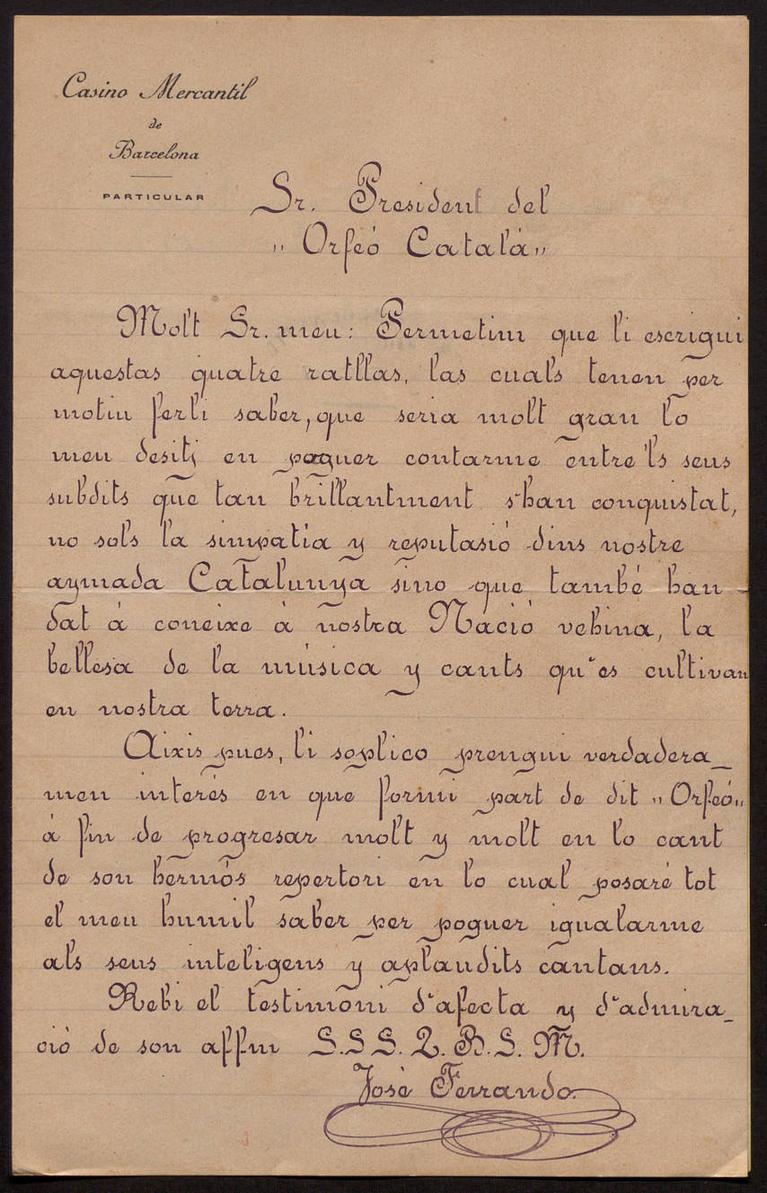 Casino Mercantil
de
Barcelona
PARTICULAR
Sr. President del
„Orfeó Catalá„
Molt Sr. meu: Permetim que li escrigui
aquestas quatre ratllas, las cuals tenen per
motiu ferli saber, que seria molt gran lo
meu desitj en poguer contarme entre'ls seus
subdits que tan brillantment s'han conquistat,
no sols la simpatía y reputasió dins nostre
aymada Catalunya sino que també han
dat á coneixe á nostra Nació vehina, la
bellesa de la música y cants qu'es cultivan
en nostra terra.
Aixis pues, li soplico prengui verdadera_
men interés en que formi part de dit „Orfeó„
á fin de progresar molt y molt en lo cant
de son hermós repertori en lo cual posaré tot
el meu humil saber per poguer igualarme
als seus inteligens y aplaudits cantans.
Rebi el testimoni d'afecta y d'admira_
ció de son affm S.S.S. Q. B. S. M.
José Ferrando.